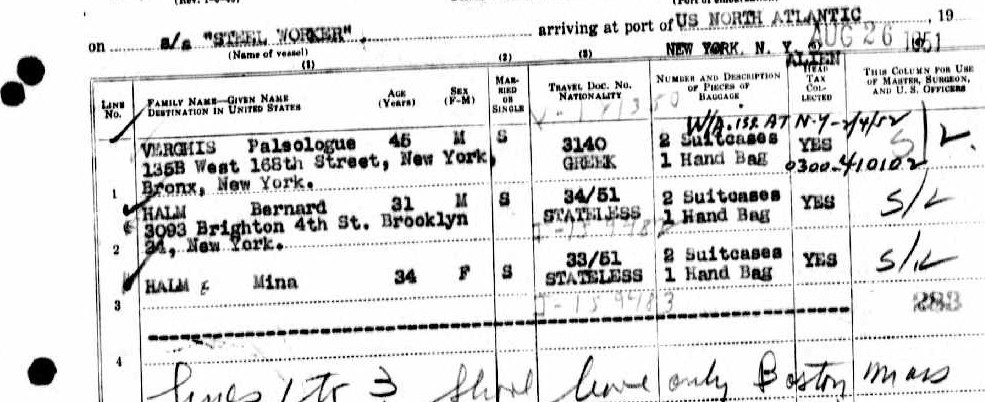 on s/s "STEEL WORKER", arriving at port of US NORTH ATLANTIC , 19
(Name of vessel) NEW YORK. N. Y. AUG 26 1951
(1) (2) (3) ALIEN
LINE No. FAMILY NAME—GIVEN NAME DESTINATION IN UNITED STATES AGE (Years) SEX (F-M) MARRIED OR SINGLE TRAVEL DOC. No. NATIONALITY NUMBER AND DESCRIPTION OF PIECES OF BAGGAGE HEAD TAX COLLECTED THIS COLUMN FOR USE OF MASTER, SURGEON, AND U. S. OFFICERS
W/A. 152 AT N-Y-2/4/52
VERGHIS Paleologue 45 M S 3140 2 Suitcases YES S/L.
135B West 168th Street, New York, GREEK 1 Hand Bag 0300-410102
1 Bronx, New York.
HALM Bernard 31 M S 34/51 2 Suitcases YES S/L
3093 Brighton 4th St. Brooklyn STATELESS 1 Hand Bag
2 24, New York.
HALM Mina 34 F S 33/51 2 Suitcases YES S/L
STATELESS 1 Hand Bag
3 283
4
Lines 1 to 3 Shore leave only Boston Mass